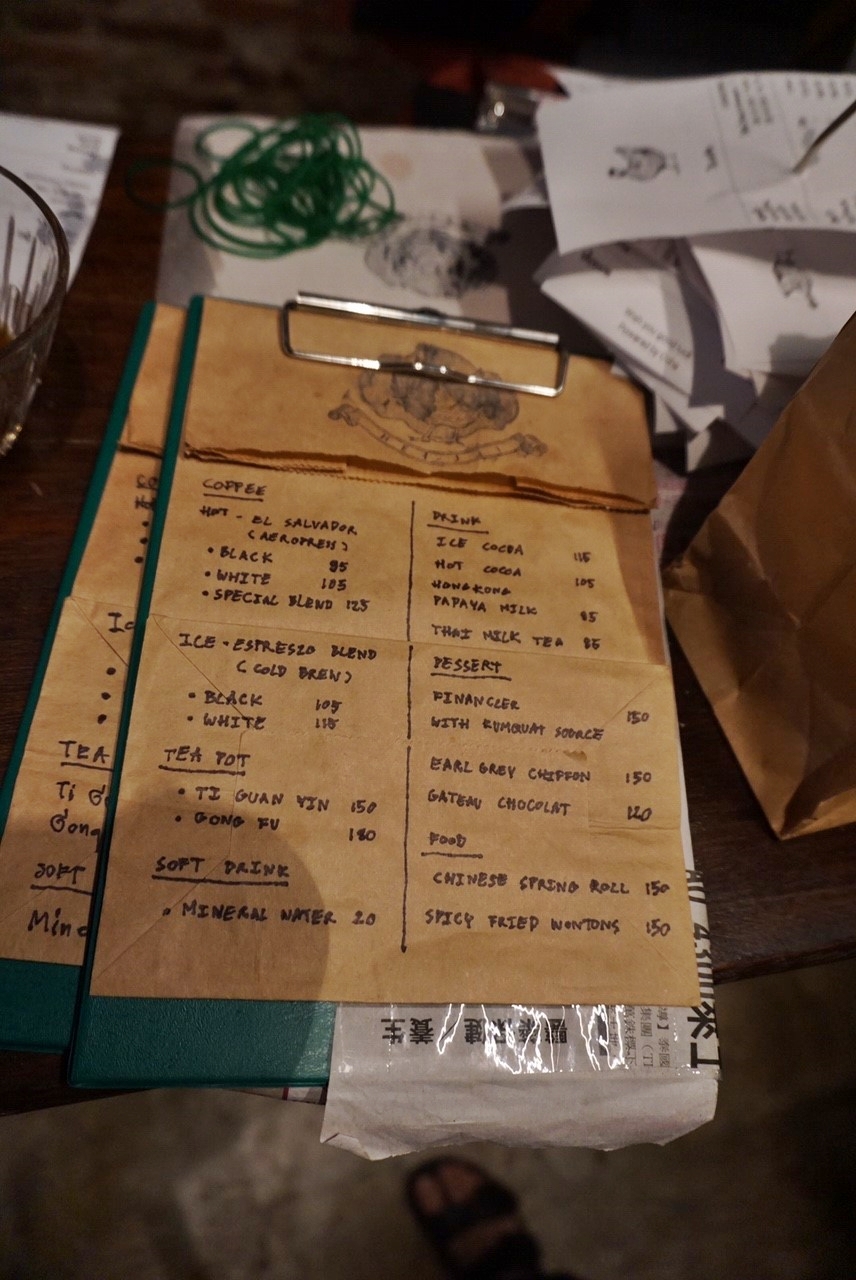 COFFEE
HOT - EL SALVADOR
(AEROPRESS)
• BLACK 95
• WHITE 105
• SPECIAL BLEND 125
ICE - ESPRESZO BLEND
(COLD BREW)
• BLACK 105
• WHITE 115
TEA POT
• TI GUAN YIN 150
• GONG FU 180
SOFT DRINK
• MINERAL WATER 20
DRINK
ICE COCOA 115
HOT COCOA 105
HONGKONG
PAPAYA MILK 85
THAI MILK TEA 85
DESSERT
FINANCIER
WITH KUMQUAT SOURCE 150
EARL GREY CHIFFON 150
GATEAU CHOCOLAT 120
FOOD
CHINESE SPRING ROLL 150
SPICY FRIED WONTONS 150
TEA
Ti G
Gong
SOFT
Mine
醫藥保健／養生